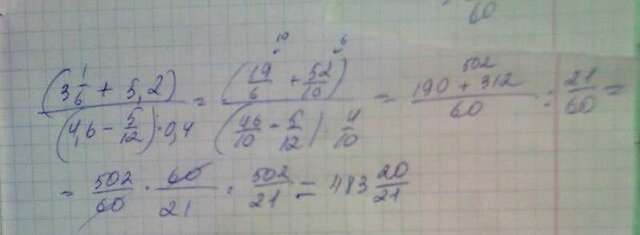 60
(3 1/6 + 5,2) / (4,6 − 5/12) · 0,4 = (19/6 + 52/10) / (46/10 − 5/12) · 4/10 = 190 + 312 / 60 : 21/60 =
10 6 502
= 502/60 · 60/21 = 502/21 = 483 20/21